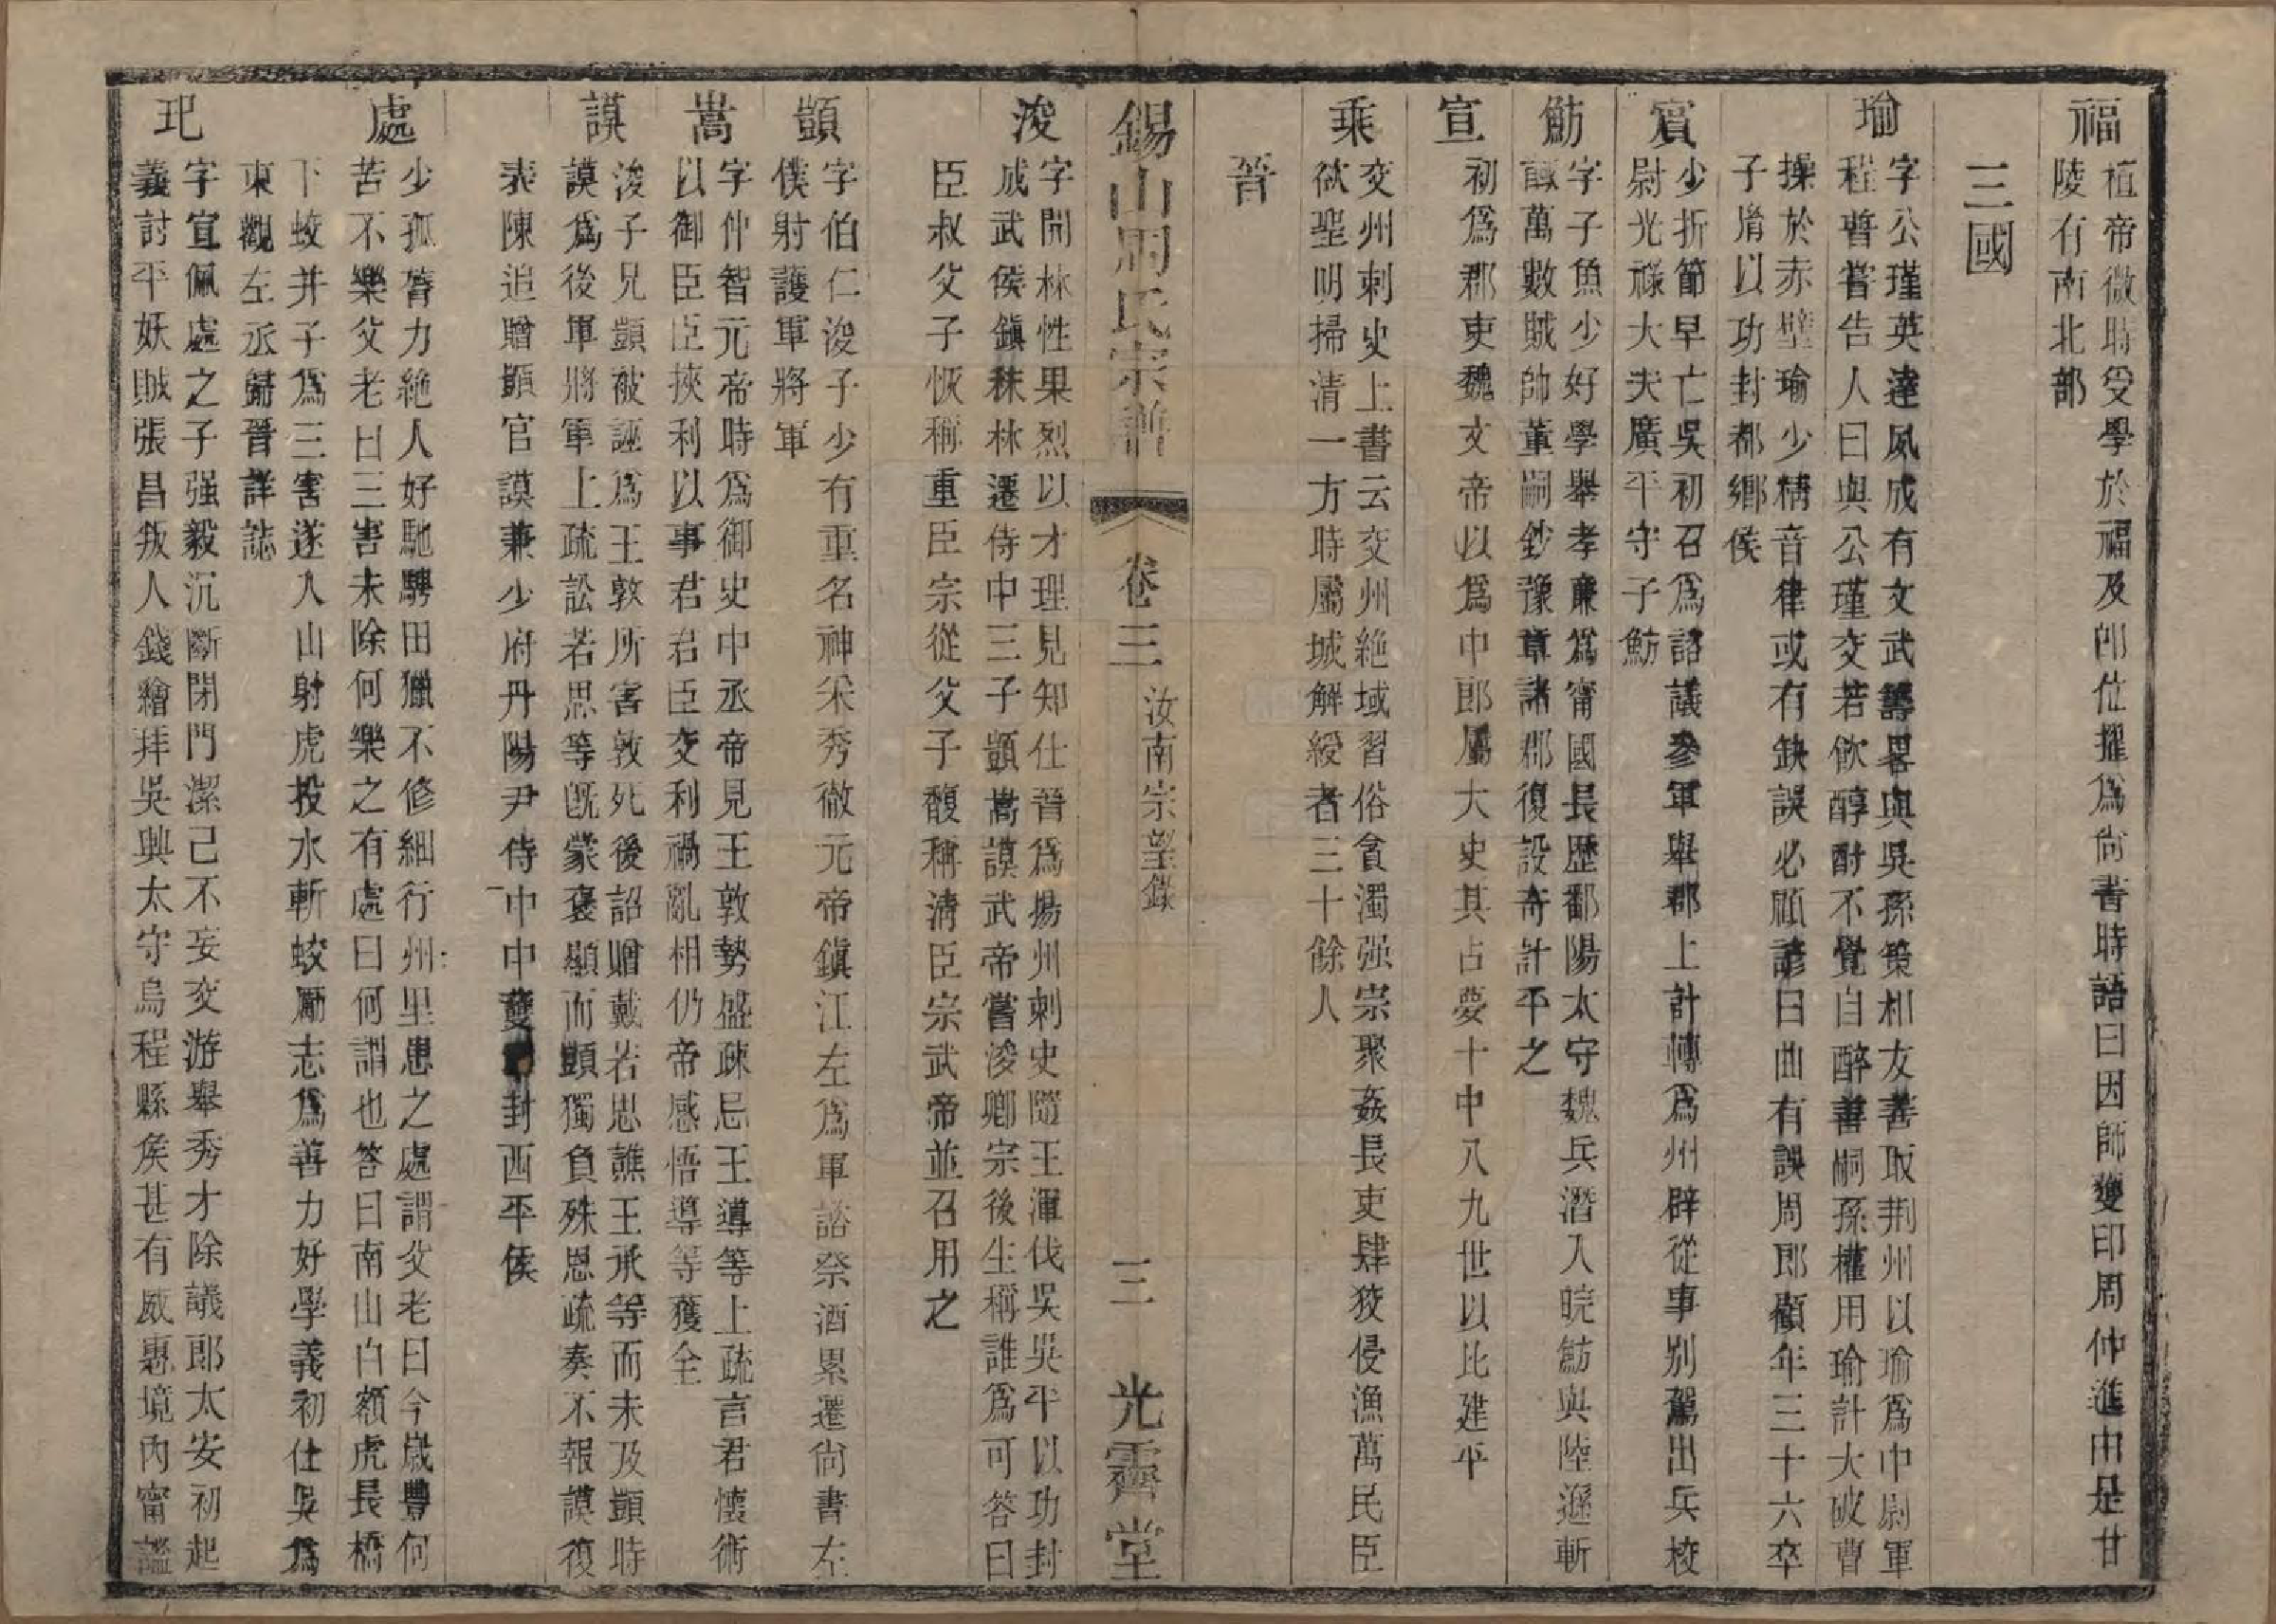 福
桓帝微時受學於福及卽位擢爲尙書時語曰因師獲印周仲進由是甘
陵有南北部
三國
瑜
字公瑾英達夙成有文武籌畧與吳孫策相友善取荆州以瑜爲中尉軍
程普嘗告人曰與公瑾交若飮醇酎不覺自醉善嗣孫權用瑜計大破曹
操於赤壁瑜少精音律或有缺誤必顧諺曰曲有誤周郎顧年三十六卒
子𦙍以功封都鄕侯
賓
少折節早亡吳初召爲諮議參軍舉郡上計轉爲州辟從事別駕出兵校
尉光祿大夫廣平守子魴
魴
字子魚少好學舉孝廉爲甯國長歷鄱陽太守魏兵潛入皖魴與陸遜斬
馘萬數賊帥董嗣鈔豫章諸郡復設奇計平之
宣
初爲郡吏魏文帝以爲中郎屬大史其占夢十中八九世以比建平
乘
交州刺史上書云交州絶域習俗貪濁强宗聚姦長吏肆狡侵漁萬民臣
欲聖明掃淸一方時屬城解綬者三十餘人
晉
錫山周氏宗譜 卷三 汝南宗望錄 三 光霽堂
浚
字開林性果烈以才理見知仕晉爲揚州刺史隨王渾伐吳吳平以功封
成武侯鎭秣林遷侍中三子顗嵩謨武帝嘗浚鄉宗後生稱誰爲可答曰
臣叔父子恢稱重臣宗從父子馥稱淸臣宗武帝並召用之
顗
字伯仁浚子少有重名神采秀徹元帝鎭江左爲軍諮祭酒累遷尙書左
僕射護軍將軍
嵩
字仲智元帝時爲御史中丞帝見王敦勢盛疎忌王導等上疏言君懷術
以御臣臣挾利以事君君臣交利禍亂相仍帝感悟導等獲全
謨
浚子兄顗被誣爲王敦所害敦死後詔贈戴若思譙王承等而未及顗時
謨爲後軍將軍上疏訟若思等旣蒙褒顯而顗獨負殊恩疏奏不報謨復
表陳追贈顗官謨兼少府丹陽尹侍中中護封西平侯
處
少孤膂力絶人好馳騁田獵不修細行州里患之處謂父老曰今歲豐何
苦不樂父老曰三害未除何樂之有處曰何謂也答曰南山白額虎長橋
下蛟并子爲三害遂入山射虎投水斬蛟勵志爲善力好學義初仕吳爲
東觀左丞歸晉詳誌
玘
字宣佩處之子强毅沉斷閉門潔己不妄交游舉秀才除議郎太安初起
義討平妖賊張昌叛人錢繪拜吳興太守烏程縣侯甚有威惠境內甯謐